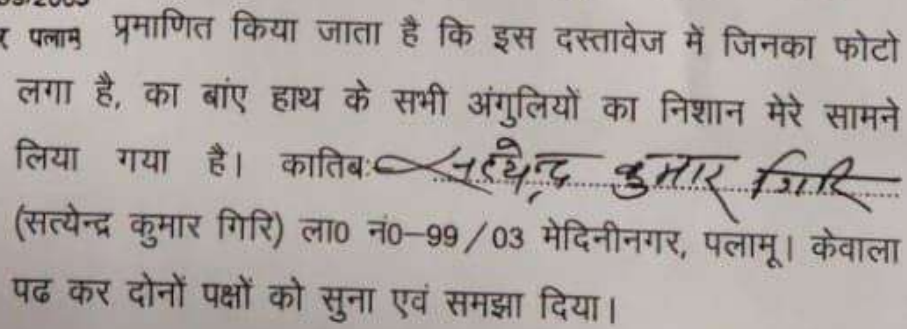 र पलामू प्रमाणित किया जाता है कि इस दस्तावेज में जिनका फोटो
लगा है, का बांए हाथ के सभी अंगुलियों का निशान मेरे सामने
लिया गया है। कातिबः सत्येन्द्र कुमार गिरि
(सत्येन्द्र कुमार गिरि) ला0 नं0–99/03 मेदिनीनगर, पलामू। केवाला
पढ कर दोनों पक्षों को सुना एवं समझा दिया।